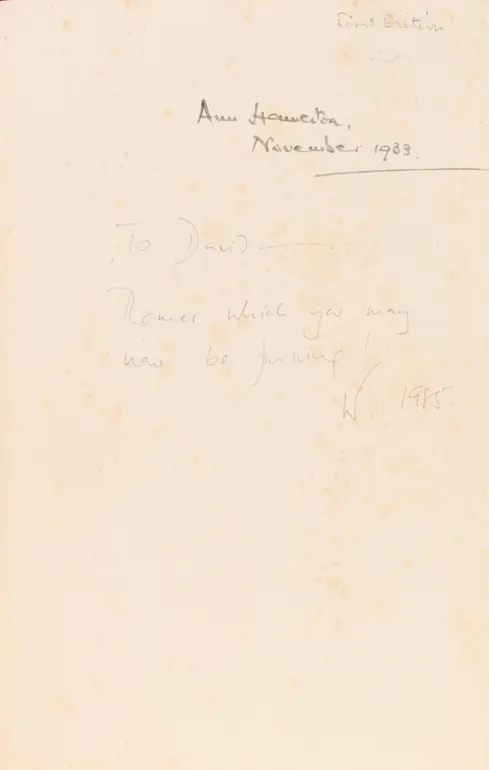 First Edition
Ann
November 1933.
To David
which you may
now be
W. 1985.